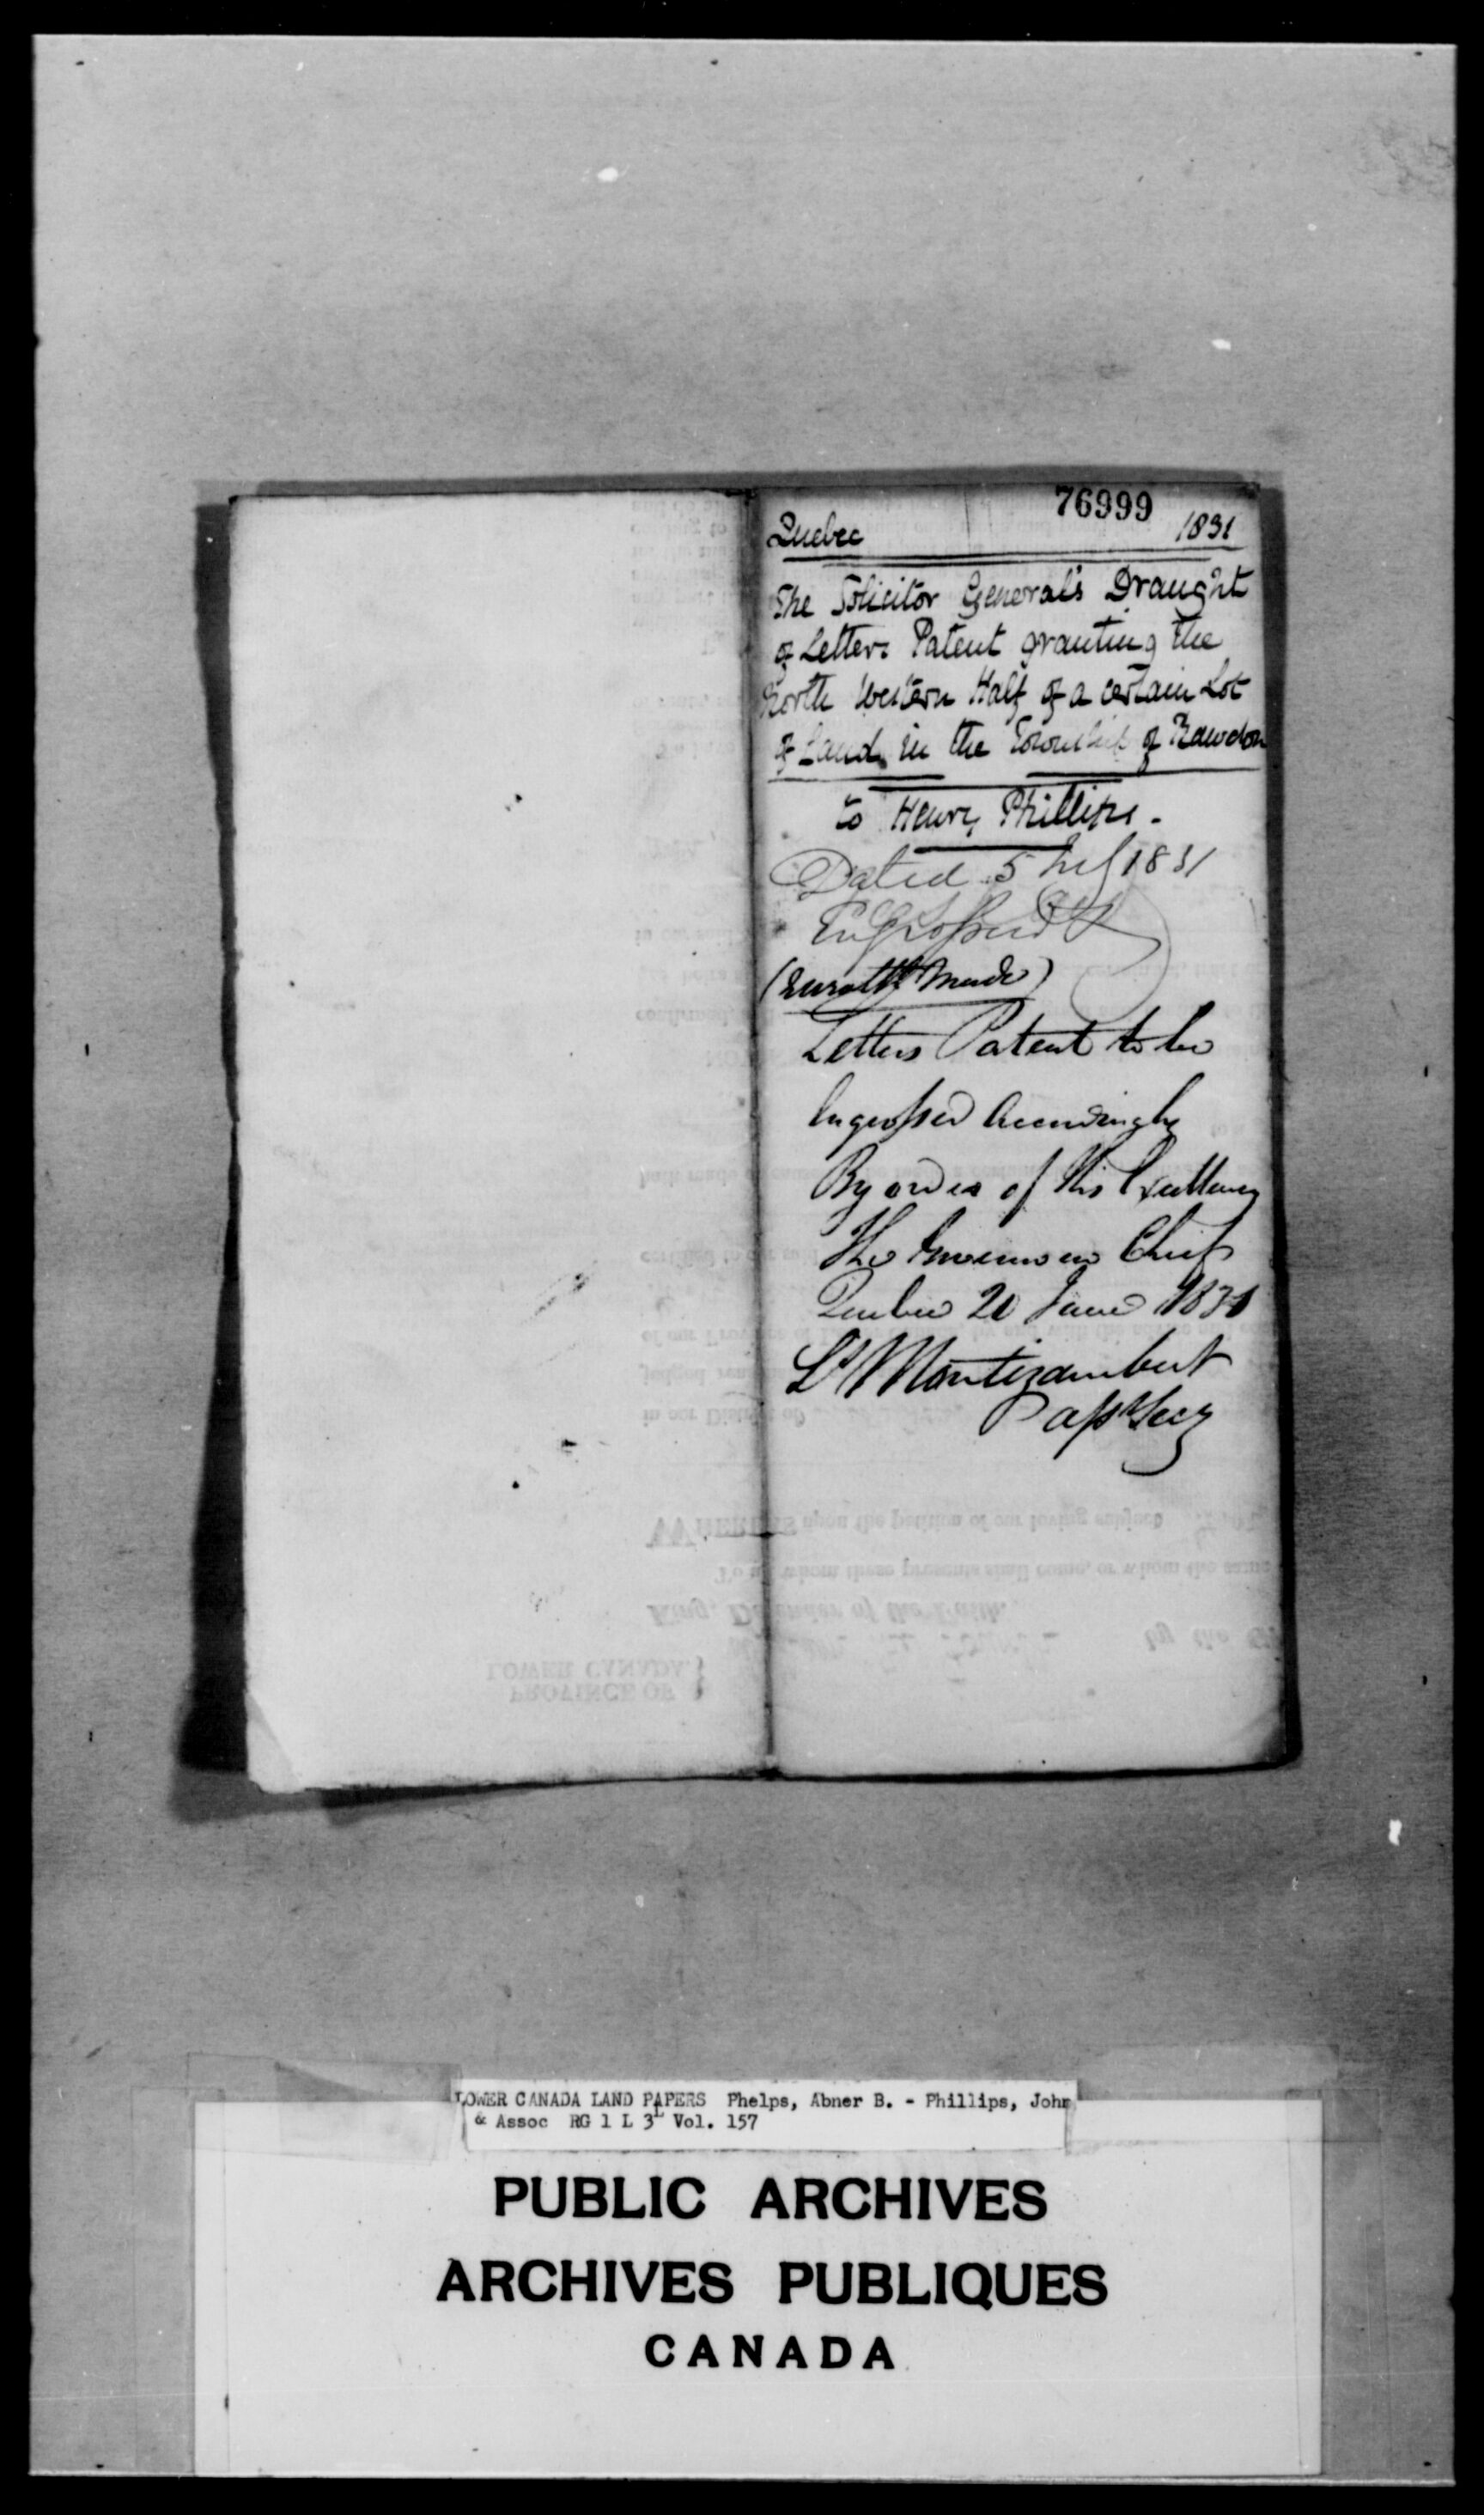 76999
Quebec 1831
The Solicitor General's Draught
of Letters Patent granting the
North Western Half of a certain Lot
of Land in the Township of Rawdon
to Henry Phillips.
Dated 5 July 1831
Engrossed
Letters Patent to be
Engrossed Accordingly
By order of His Excellency
The Governor in Chief
Quebec 20 June 1831
Ls Montizambert
Asst Secy
LOWER CANADA LAND PAPERS Phelps, Abner B. - Phillips, John
& Assoc RG 1 L 3L Vol. 157
PUBLIC ARCHIVES
ARCHIVES PUBLIQUES
CANADA